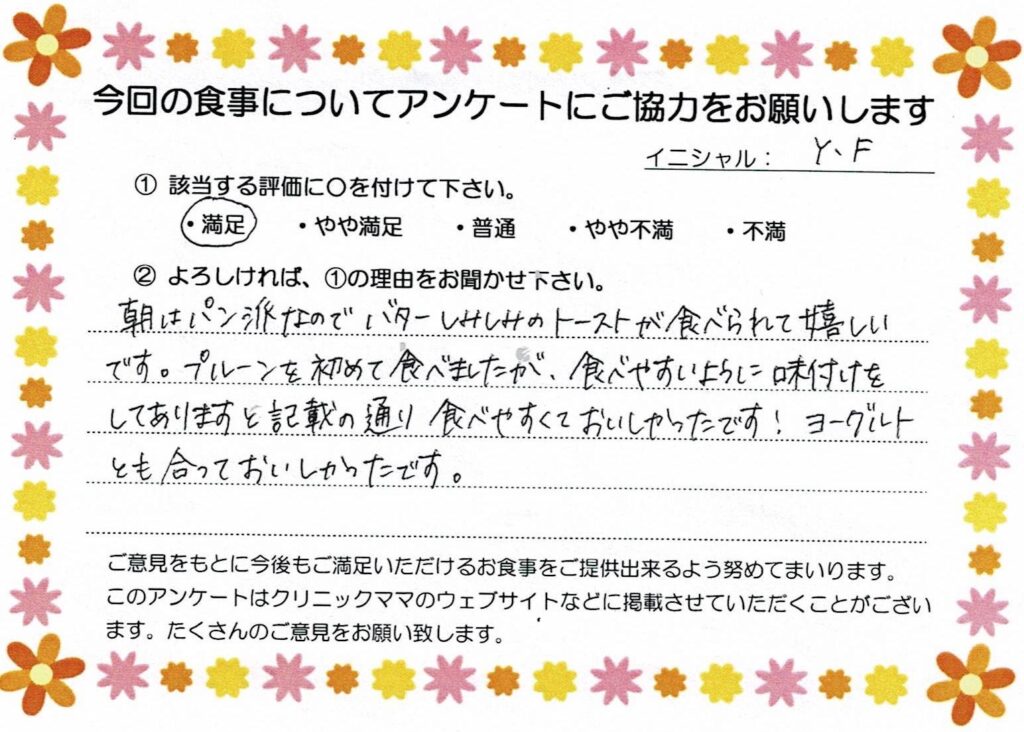 今回の食事についてアンケートにご協力をお願いします
イニシャル： Y、F
① 該当する評価に〇を付けて下さい。
・満足 ・やや満足 ・普通 ・やや不満 ・不満
② よろしければ、①の理由をお聞かせ下さい。
朝はパン派なのでバターしみしみのトーストが食べられて嬉しい
です。プルーンを初めて食べましたが、食べやすいように味付けを
してありますと記載の通り食べやすくておいしかったです！ヨーグルト
とも合っておいしかったです。
ご意見をもとに今後もご満足いただけるお食事をご提供出来るよう努めてまいります。
このアンケートはクリニックママのウェブサイトなどに掲載させていただくことがござい
ます。たくさんのご意見をお願い致します。